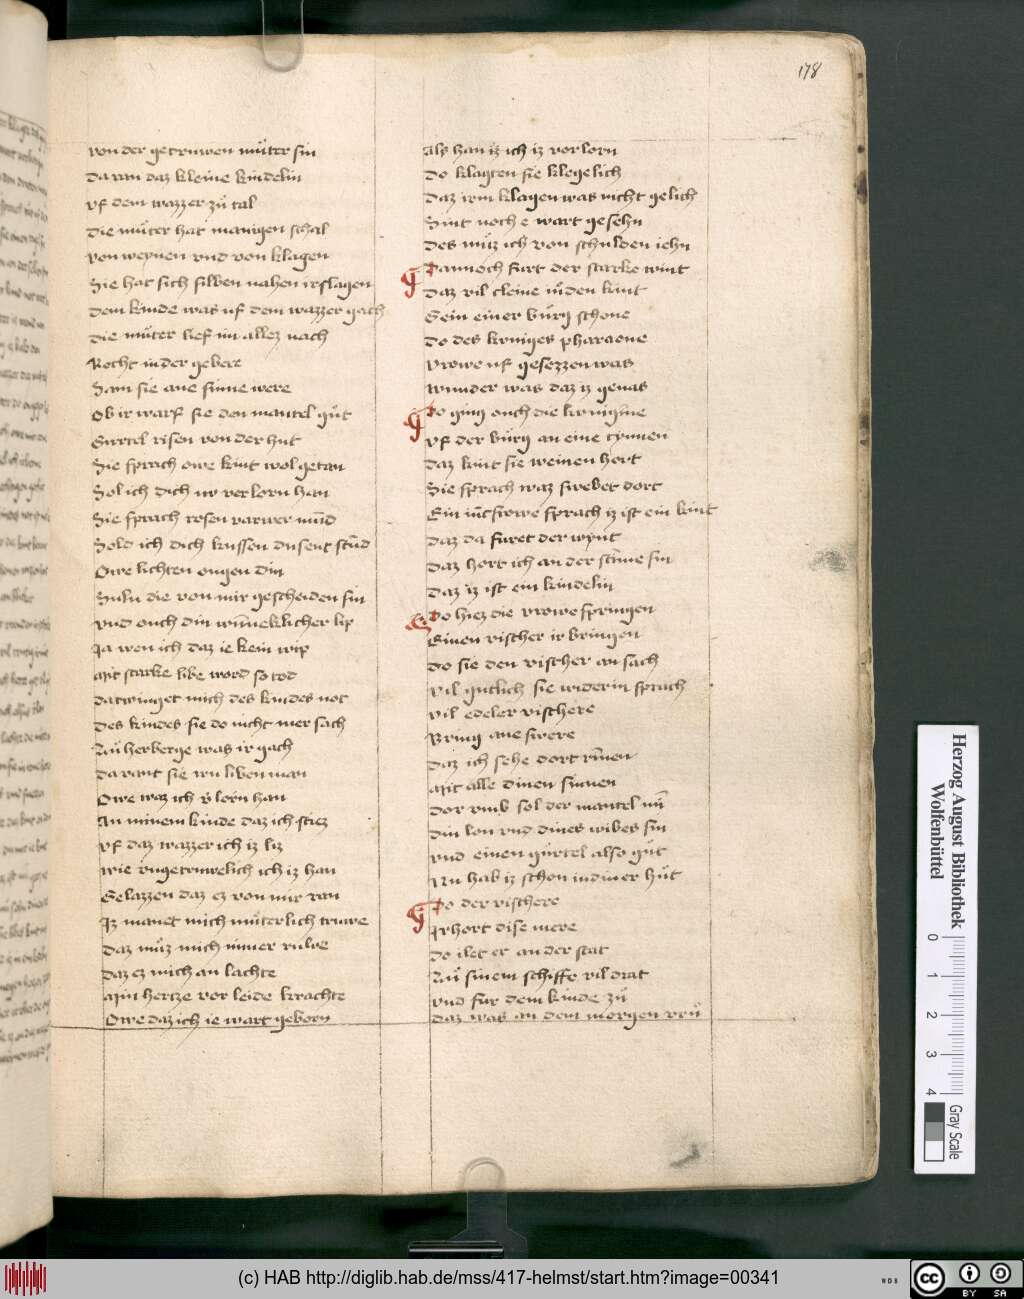 178
von der getruwen můter sin
da ran daz kleine kindelin
vf dem wazzer zů tal
die můter hat manigen schal
von weynen vnd von klagen
Sie hat sich silben nahen irslagen
dem kinde was uf dem wazzer gach
die můter lief im allez nach
Recht in der gebere
Sam sie ane sinne were
Ob ir warf sie den mantel gůt
Gurtel risen von der hut
Sie sprach owe kint wol getan
Sol ich dich nv verlorn han
Sie sprach rosen varwer mūd
Sold ich dich kussen dusent stūd
Owe lichten ougen din
Suln die von mir gescheiden sin
vnd ouch din winneklicher lip
Ja wen ich daz ie kein wip
Mit starke libe word so tod
da twinget mich des kindes not
des kindes sie do nicht mer sach
Zů herberge was ir gach
da vant sie irn liben man
Owe waz ich v̄lorn han
An minem kinde daz ich stiez
vf daz wazzer ich iz liz
wie vngetruwelich ich iz han
Gelazzen daz ez von mir ran
Iz manet mich můterlich truwe
daz můz mich immer ruwe
daz ez mich an lachte
Min hertze vor leide krachte
Owe daz ich ie wart geborn
als han iz ich iz vorlorn
do klagten sie klegelich
daz irm klagen was nicht gelich
Sint noch e wart gesehn
des můz ich von schulden iehn
Dannoch furt der starke wint
daz vil cleine iůden kint
Gein einer bůrg schone
do des koniges pharaone
vrowe uf gesezzen was
wunder was daz iz genas
Do ging ouch die konigīne
vf der bůrg an eine cynnen
daz kint sie weinen hort
Sie sprach waz swebet dort
Ein iūcfrowe sprach iz ist ein kint
daz da furet der wynt
daz hort ich an der stīme sin
daz iz ist ein kindelin
Do hiez die vrowe springen
Einen vischer ir bringen
do sie den vischer an sach
vil gutlich sie wider in sprach
vil edeler vischere
Bring ane swere
daz ich sehe dort rīnen
Mit alle dinen sinnen
dor vmb sol der mantel mī
din lon vnd dines wibes sin
vnd einen gůrtel also gůt
Nu hab iz schon in diner hůt
Do der vischere
Irhort dise mere
do ilet er an der stat
Zů sinem schiffe vil drat
vnd fur dem kinde zů
daz was an dem morgen vrů
Herzog August Bibliothek
Wolfenbüttel
0 1 2 3 4
Gray Scale
(c) HAB http://diglib.hab.de/mss/417-helmst/start.htm?image=00341
WDB
CC
BY SA